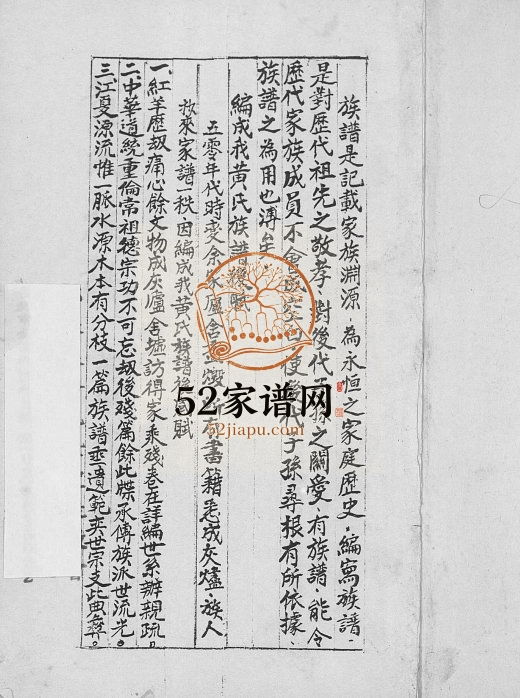 族譜是記載家族淵源，為永恒之家庭歷史，編寫族譜，
是對歷代祖先之敬孝，對後代子孫之關愛，有族譜，能令
歷代家族成員不會使後代子孫尋根有所依據，
族譜之為用也溥
編成我黃氏族譜後賦
五零年代時变余家廬舍有書籍悉成灰燼，族人
攽來家譜一秩，因編成我黃氏族譜後賦
一、紅羊歷劫痛心餘文物成灰廬舍墟訪得家乘殘卷在詳編世系辦親疏。
二、中華道統重倫常祖德宗功不可忘劫後殘篇餘此牒承傳族派世流光。
三、江夏源流惟一脈水源木本有分枝一篇族譜垂遺範奕世宗支此典彝。
52家谱网
52jiapu.com